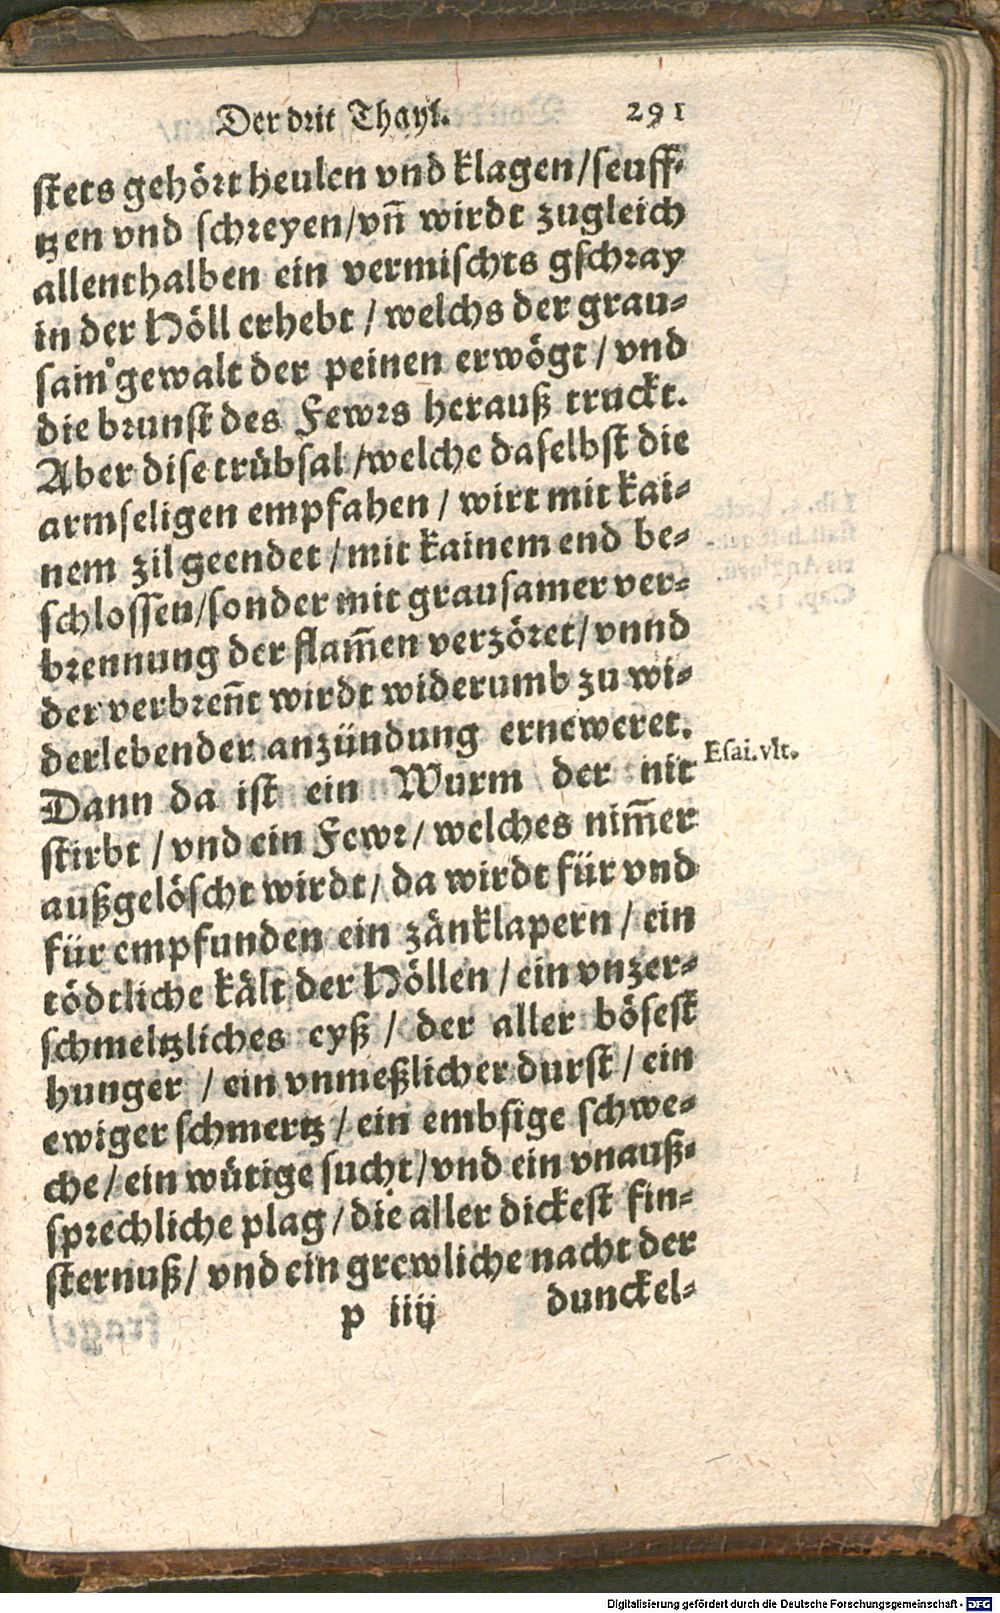 Der drit Thayl. 291
stets gehört heulen vnd klagen/seuff-
tzen vnd schreyen/vñ wirdt zugleich
allenthalben ein vermischts gschray
in der Höll erhebt / welchs der grau-
sam gewalt der peinen erwögt / vnd
die brunst des Fewrs herauß truckt.
Aber dise trübsal/welche daselbst die
armseligen empfahen / wirt mit kai-
nem zil geendet / mit kainem end be-
schlossen/sonder mit grausamer ver-
brennung der flam̃en verzöret/ vnnd
der verbreñt wirdt widerumb zu wi-
derlebender anzündung erneweret.
Dann da ist ein Wurm der nit
Esai.vlt.
stirbt / vnd ein Fewr/ welches nim̃er
außgelöscht wirdt/ da wirdt für vnd
für empfunden ein zänklapern / ein
tödtliche kält der Höllen / ein vnzer-
schmeltzliches eyß / der aller bösest
hunger / ein vnmeßlicher durst / ein
ewiger schmertz / ein embsige schwe-
che / ein wütige sucht/ vnd ein vnauß-
sprechliche plag / die aller dickest fin-
sternuß/ vnd ein grewliche nacht der
p iiij dunckel-
Digitalisierung gefördert durch die Deutsche Forschungsgemeinschaft - DFG